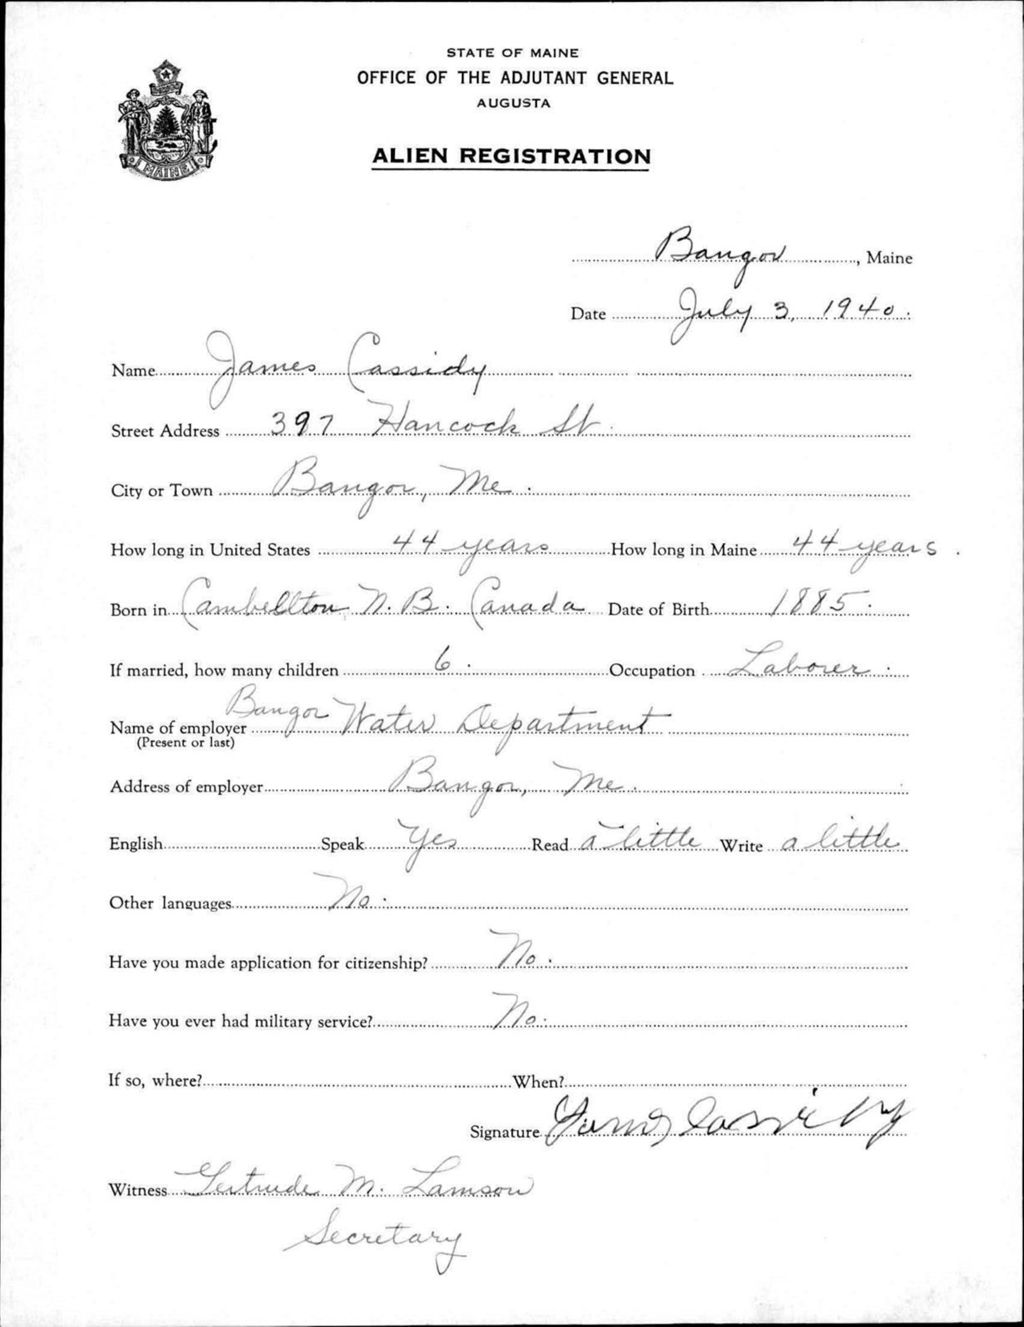 STATE OF MAINE
OFFICE OF THE ADJUTANT GENERAL
AUGUSTA
ALIEN REGISTRATION
MAINE
Bangor, Maine
Date July 3, 1940.
Name James Cassidy
Street Address 397 Hancock St.
City or Town Bangor, Me.
How long in United States 44 years How long in Maine 44 years.
Born in Cambellton N.B. Canada Date of Birth 1885.
If married, how many children 6. Occupation Laborer.
Name of employer Bangor Water Department
(Present or last)
Address of employer Bangor, Me.
English Speak Yes Read a little Write a little.
Other languages No.
Have you made application for citizenship? No.
Have you ever had military service? No.
If so, where? When?
Signature James Cassidy
Witness Gertrude M. Lamson
Secretary